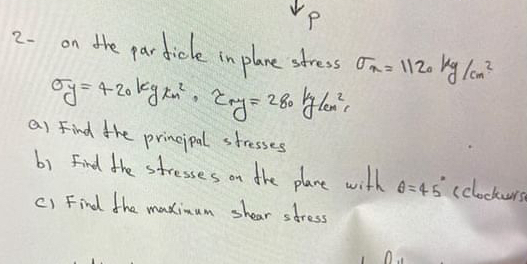 P
2- on the particle in plane stress σx = 1120 kg/cm²
σy = 420 kg/cm², τxy = 280 kg/cm²,
a) Find the principal stresses
b) Find the stresses on the plane with θ=45° (clockwise
c) Find the maximum shear stress